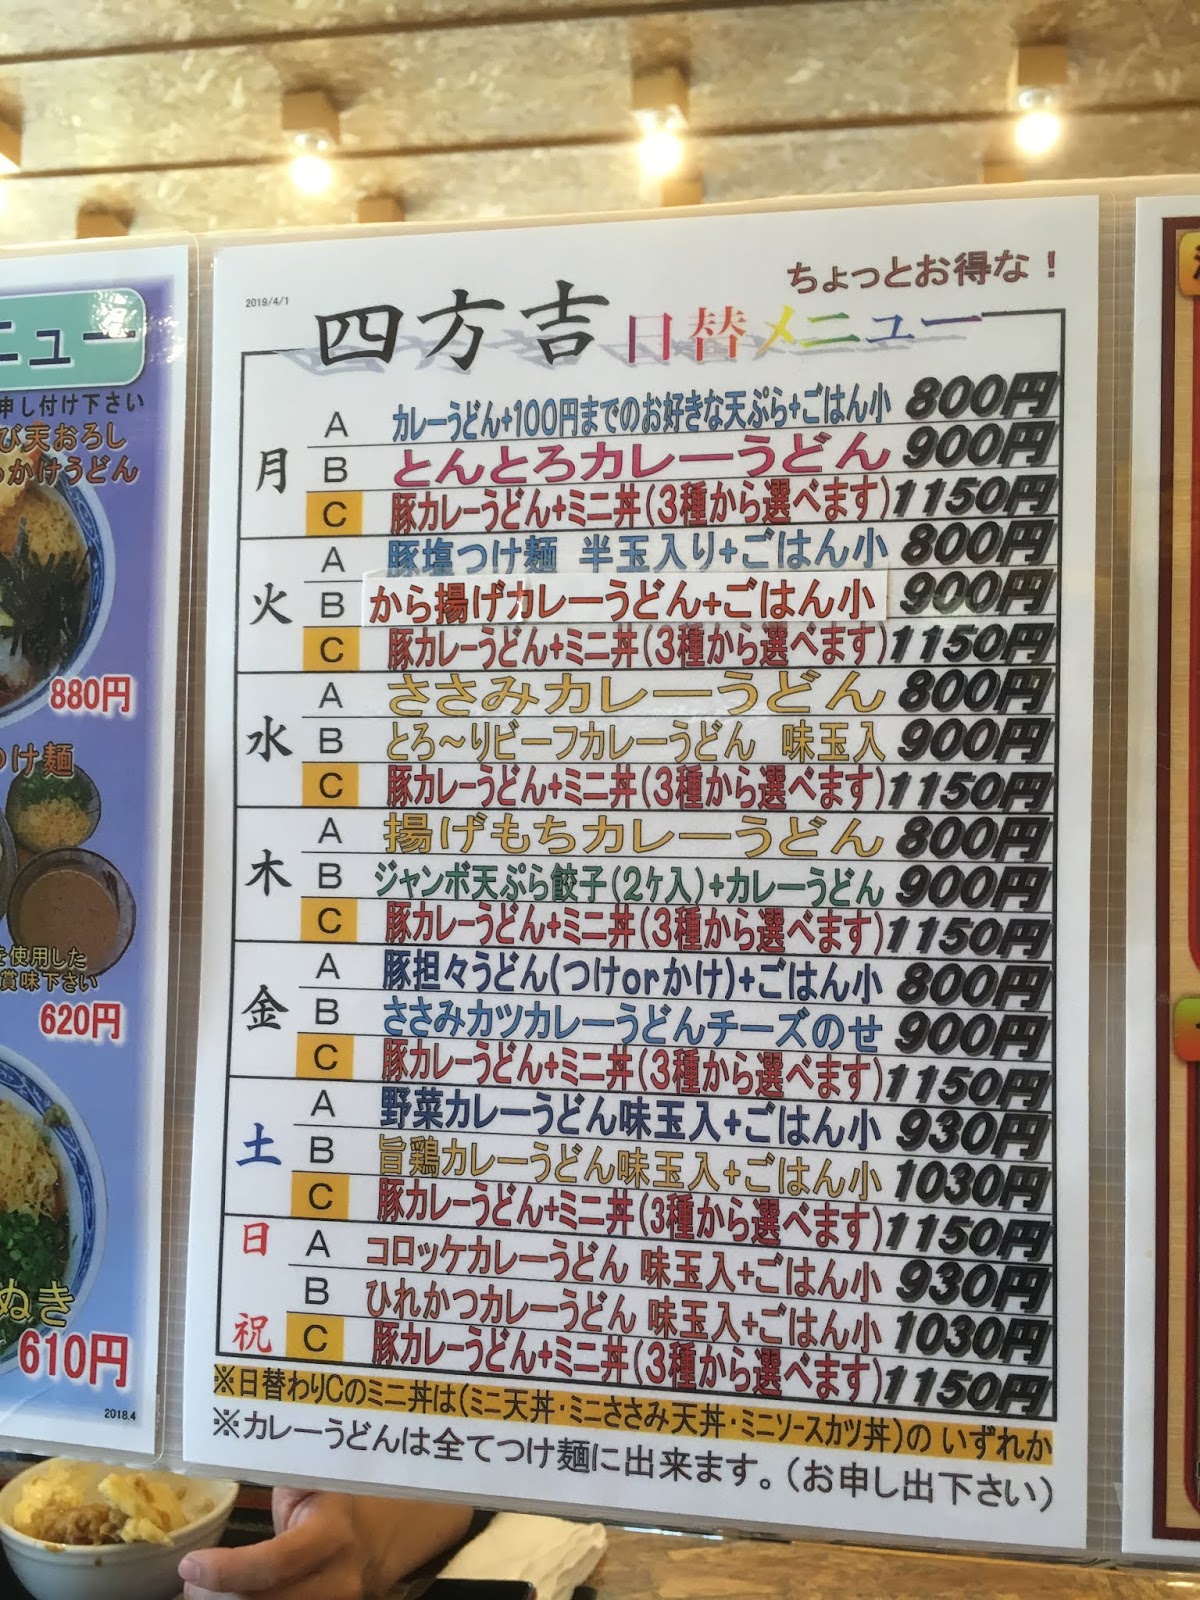 ニュー
申し付け下さい
び天おろし
っかけうどん
880円
つけ麺
を使用した
賞味下さい
620円
ぬき
610円
2018.4
2019/4/1
ちょっとお得な！
四方吉 日替メニュー
月
A カレーうどん+100円までのお好きな天ぷら+ごはん小 800円
B とんとろカレーうどん 900円
C 豚カレーうどん+ミニ丼(3種から選べます) 1150円
火
A 豚塩つけ麺 半玉入り+ごはん小 800円
B から揚げカレーうどん+ごはん小 900円
C 豚カレーうどん+ミニ丼(3種から選べます) 1150円
水
A ささみカレーうどん 800円
B とろ～りビーフカレーうどん 味玉入 900円
C 豚カレーうどん+ミニ丼(3種から選べます) 1150円
木
A 揚げもちカレーうどん 800円
B ジャンボ天ぷら餃子(2ヶ入)+カレーうどん 900円
C 豚カレーうどん+ミニ丼(3種から選べます) 1150円
金
A 豚担々うどん(つけorかけ)+ごはん小 800円
B ささみカツカレーうどんチーズのせ 900円
C 豚カレーうどん+ミニ丼(3種から選べます) 1150円
土
A 野菜カレーうどん味玉入+ごはん小 930円
B 旨鶏カレーうどん味玉入+ごはん小 1030円
C 豚カレーうどん+ミニ丼(3種から選べます) 1150円
日祝
A コロッケカレーうどん 味玉入+ごはん小 930円
B ひれかつカレーうどん 味玉入+ごはん小 1030円
C 豚カレーうどん+ミニ丼(3種から選べます) 1150円
※日替わりCのミニ丼は(ミニ天丼・ミニささみ天丼・ミニソースカツ丼)の いずれか
※カレーうどんは全てつけ麺に出来ます。(お申し出下さい)